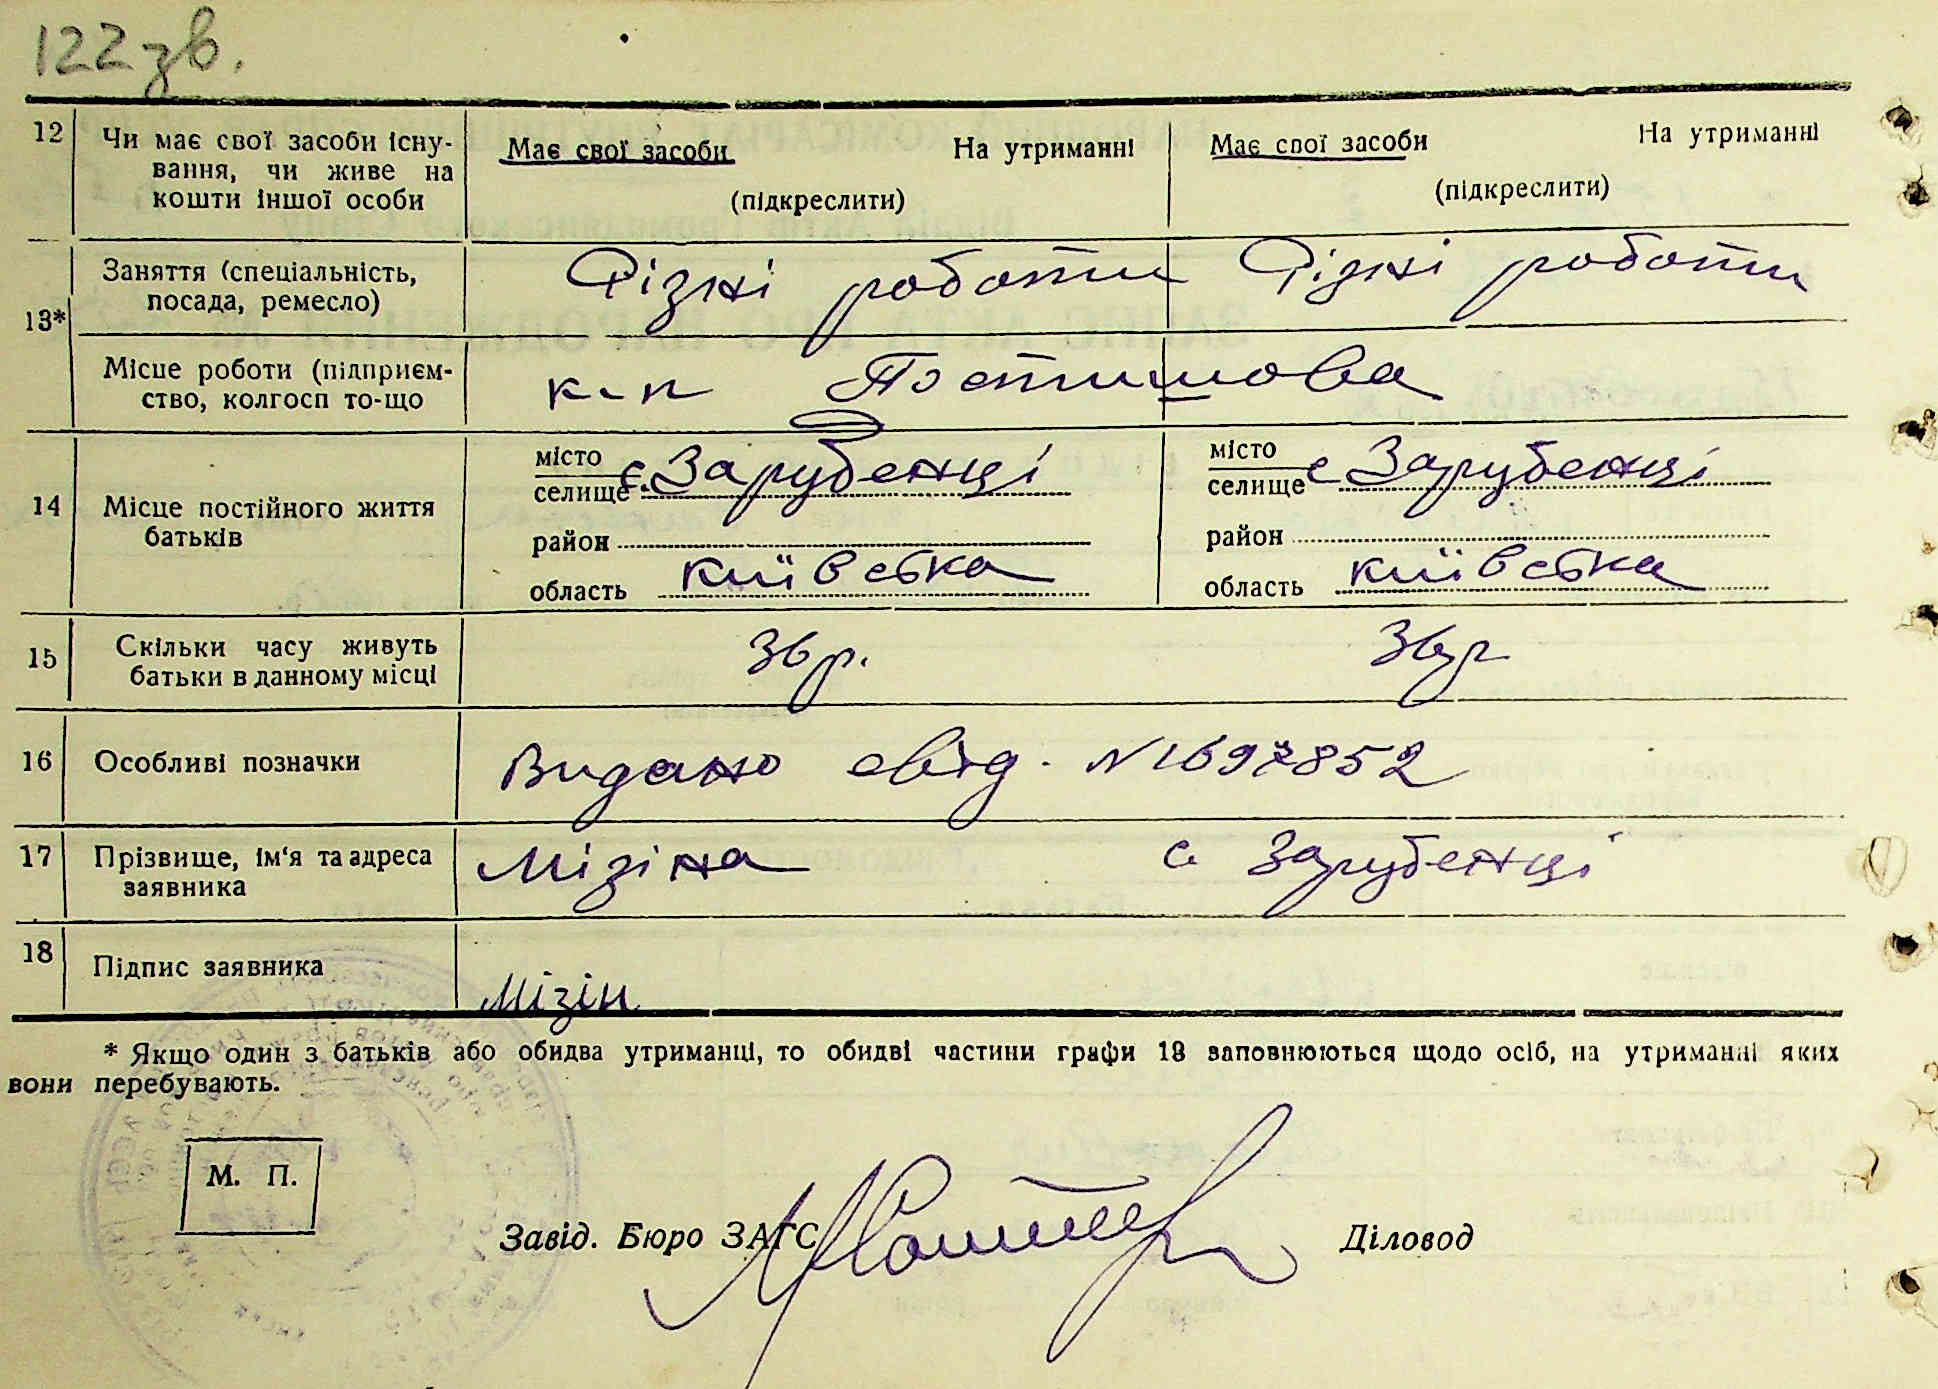 122 зв.
12 Чи має свої засоби існу-
вання, чи живе на
кошти іншої особи
Має свої засоби На утриманні
(підкреслити)
Має свої засоби На утриманні
(підкреслити)
13*
Заняття (спеціальність,
посада, ремесло)
Різні роботи Різні роботи
Місце роботи (підприєм-
ство, колгосп то-що
к-п Постишова
14 Місце постійного життя
батьків
місто
селище с. Зарубенці
район
область київська
місто
селище с Зарубенці
район
область київська
15 Скільки часу живуть
батьки в данному місці
36 р. 36 р
16 Особливі позначки
Видано свід. N 1697852
17 Прізвище, ім'я та адреса
заявника
Мізіна с Зарубенці
18 Підпис заявника
Мізін
* Якщо один з батьків або обидва утриманці, то обидві частини графи 13 заповнюються щодо осіб, на утриманні яких
вони перебувають.
М. П.
Завід. Бюро ЗАГС Діловод